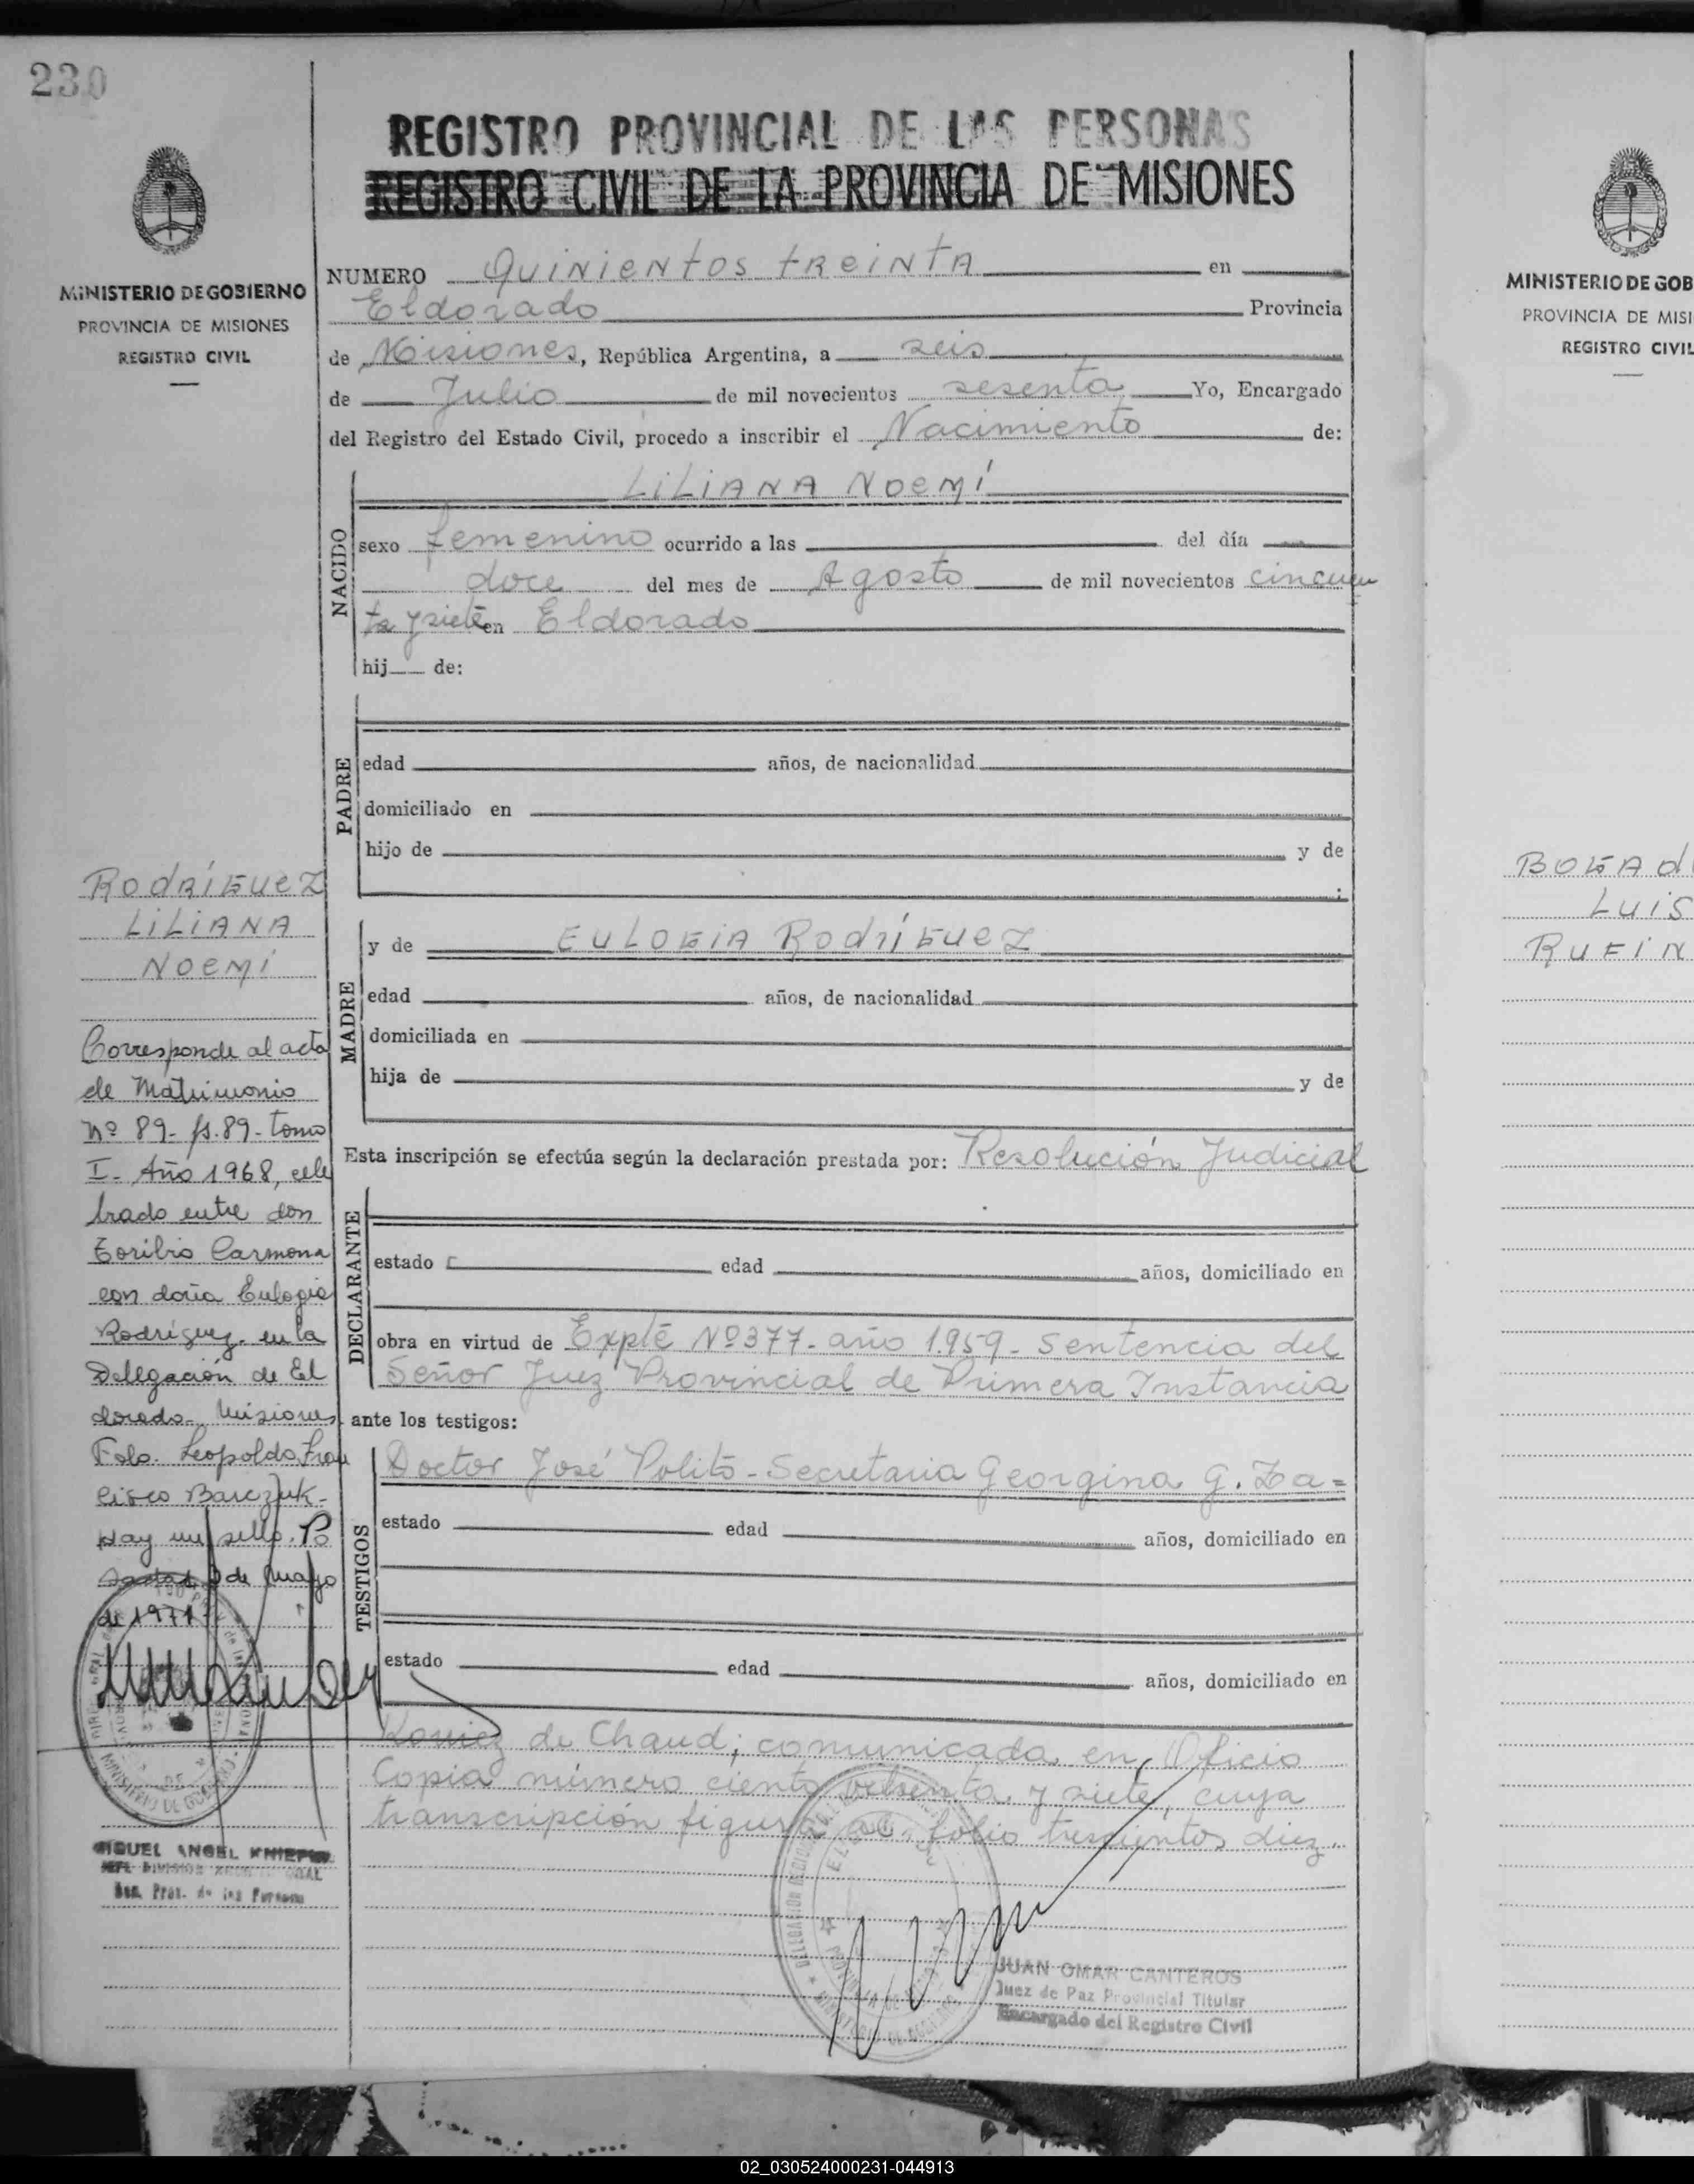 230
REGISTRO PROVINCIAL DE LAS PERSONAS
REGISTRO CIVIL DE LA PROVINCIA DE MISIONES
MINISTERIO DE GOBIERNO
PROVINCIA DE MISIONES
REGISTRO CIVIL
NUMERO Quinientos treinta en
Eldorado Provincia
de Misiones, República Argentina, a seis
de Julio de mil novecientos sesenta Yo, Encargado
del Registro del Estado Civil, procedo a inscribir el Nacimiento de:
NACIDO
LiLiANA NOEMÍ
sexo femenino ocurrido a las del día
doce del mes de Agosto de mil novecientos cincuen
ta y siete en Eldorado
hij de:
PADRE
edad años, de nacionalidad
domiciliado en
hijo de y de
;
MADRE
y de EULOGIA RodríGuez
edad años, de nacionalidad
domiciliada en
hija de y de
Esta inscripción se efectúa según la declaración prestada por: Resolución Judicial
DECLARANTE
estado edad años, domiciliado en
obra en virtud de Expte Nº 377- año 1.959- Sentencia del
Señor Juez Provincial de Primera Instancia
ante los testigos:
TESTIGOS
Doctor José Polito - Secretaria Georgina G. Za=
estado edad años, domiciliado en
estado edad años, domiciliado en
de Chaud; comunicada en Oficio
Copia número ciento y siete, cuya
transcripción figura al folio trescientos diez.
JUAN OMAR CANTEROS
Juez de Paz Provincial Titular
Encargado del Registro Civil
RodríGuez
LiLiANA
NOEMÍ
Corresponde al acta
de Matrimonio
nº 89- fs. 89- tomo
I- Año 1968, cele
brado entre don
Toribio Carmona
con doña Eulogia
Rodríguez- en la
Delegación de El
dorado- Misiones
Fdo. Leopoldo Fran
cisco Barczuk-
Hay un sello. Po
de Mayo
de 1971-
MINISTERIO DE GOBIERNO
MIGUEL ANGEL
JEFE DIVISION
Reg. Prov. de las Personas
MINISTERIO DE GOB
PROVINCIA DE MISI
REGISTRO CIVIL
BOGAd
LUiS
RUFiN
02_030524000231-044913